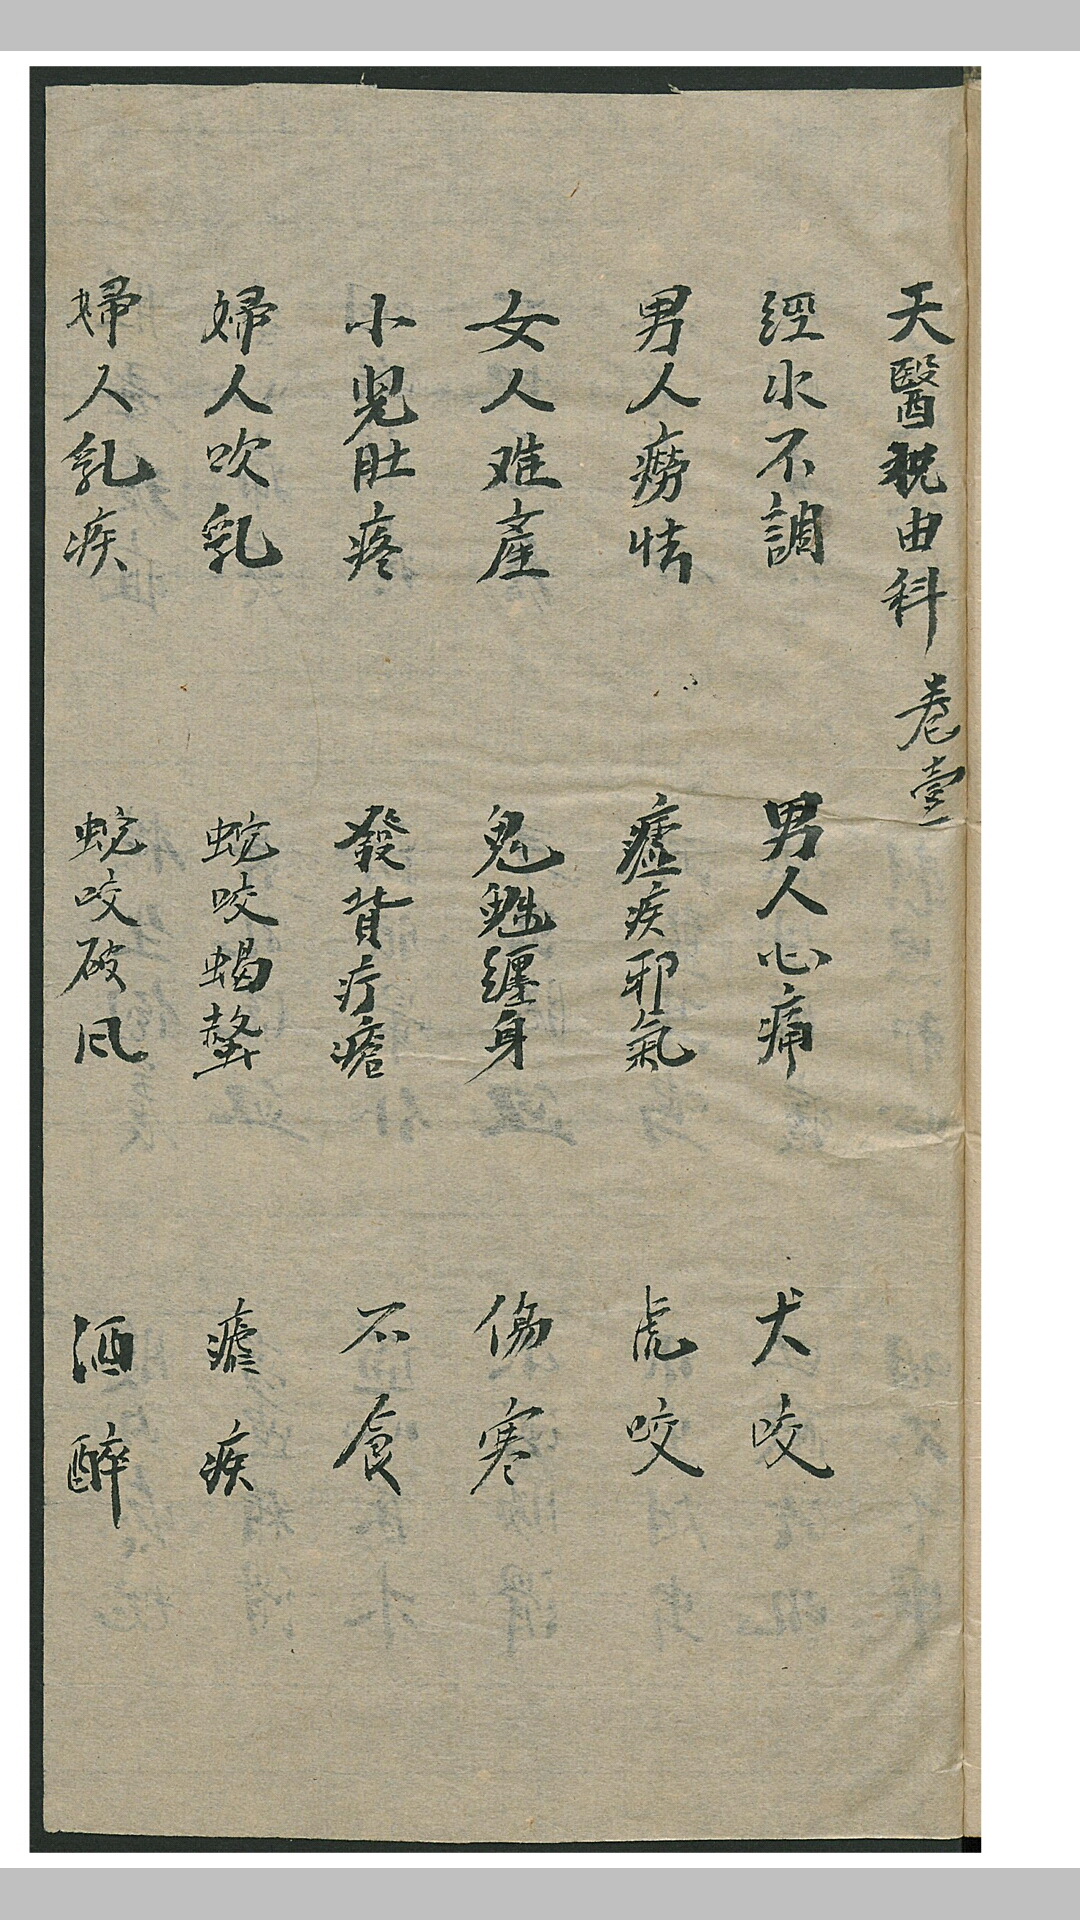 天醫祝由科 卷壹
經水不調 男人心痛 犬咬
男人癆怯 瘧疾邪氣 虎咬
女人难產 鬼魅纏身 傷寒
小児肚疼 發背疔瘡 不食
婦人吹乳 蛇咬蝎螫 瘧疾
婦人乳疾 蛇咬破风 酒醉